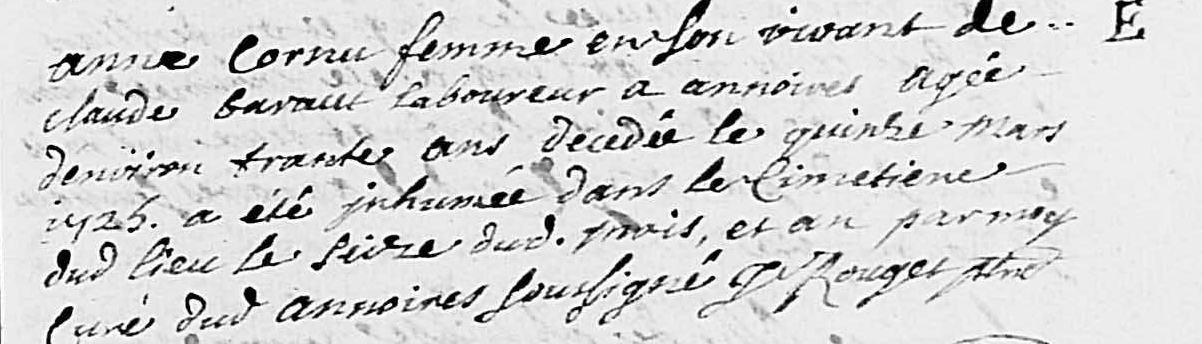 anne Cornu femme en son vivant de .. E
claude baraut laboureur a annoires agée
denviron trante ans decedée le quinze mars
1725. a été jnhumée dans le Cimetiere
dud lieu le seize dud. mois, et an par moy
Curé dud annoires soussigné Rouget ptre